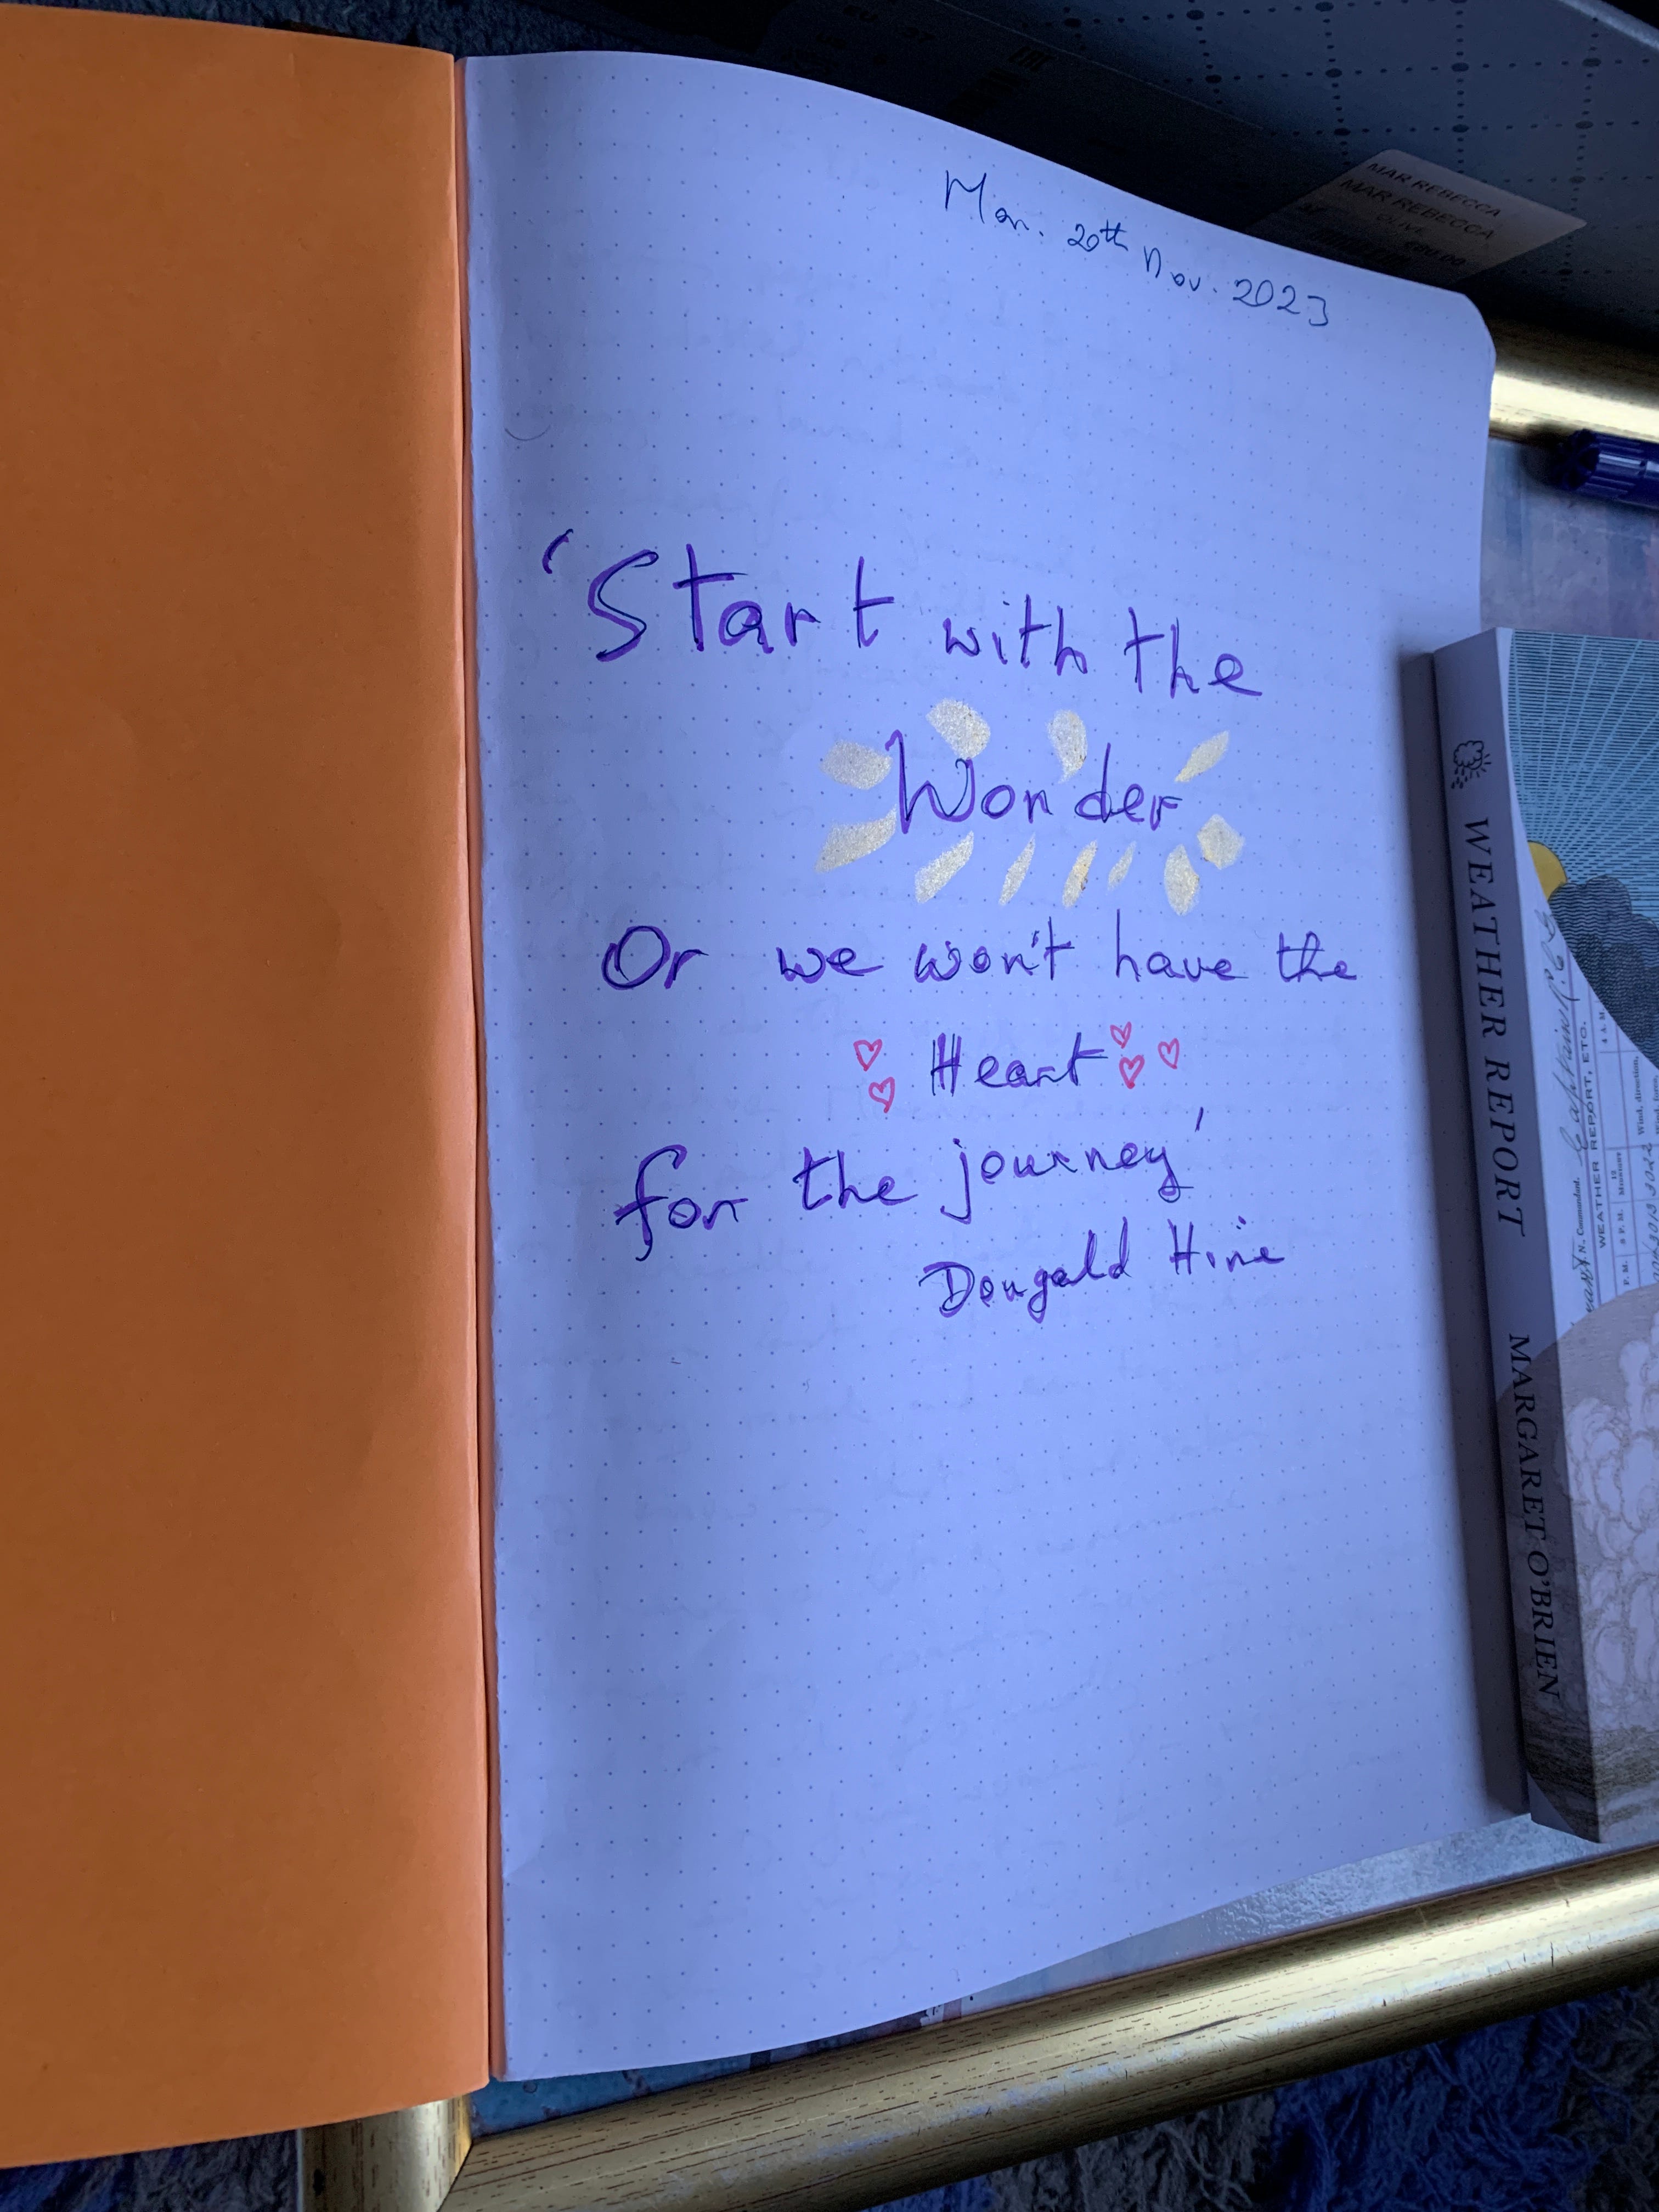 Mon. 20th Nov. 2023
'Start with the
Wonder
Or we won't have the
Heart
for the journey'
Dougald Hine
MAR REBECCA
MAR REBECCA
OLIVE
WEATHER REPORT MARGARET O'BRIEN
WEATHER REPORT, ETC.
N. Commandant.
Wind, direction,